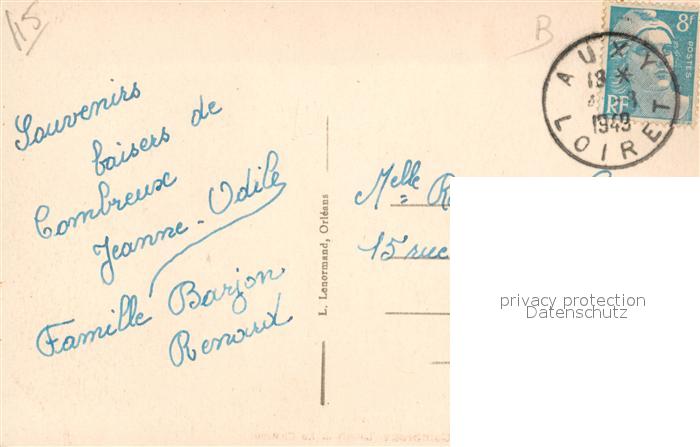 115
B
8F
POSTES
RF
AUXY
18 *
1949
LOIRET
Souvenirs
baisers de
Combreux
Jeanne-Odile
Famille Barjon
Renard
L. Lenormand, Orléans
Melle
15 rue
privacy protection
Datenschutz